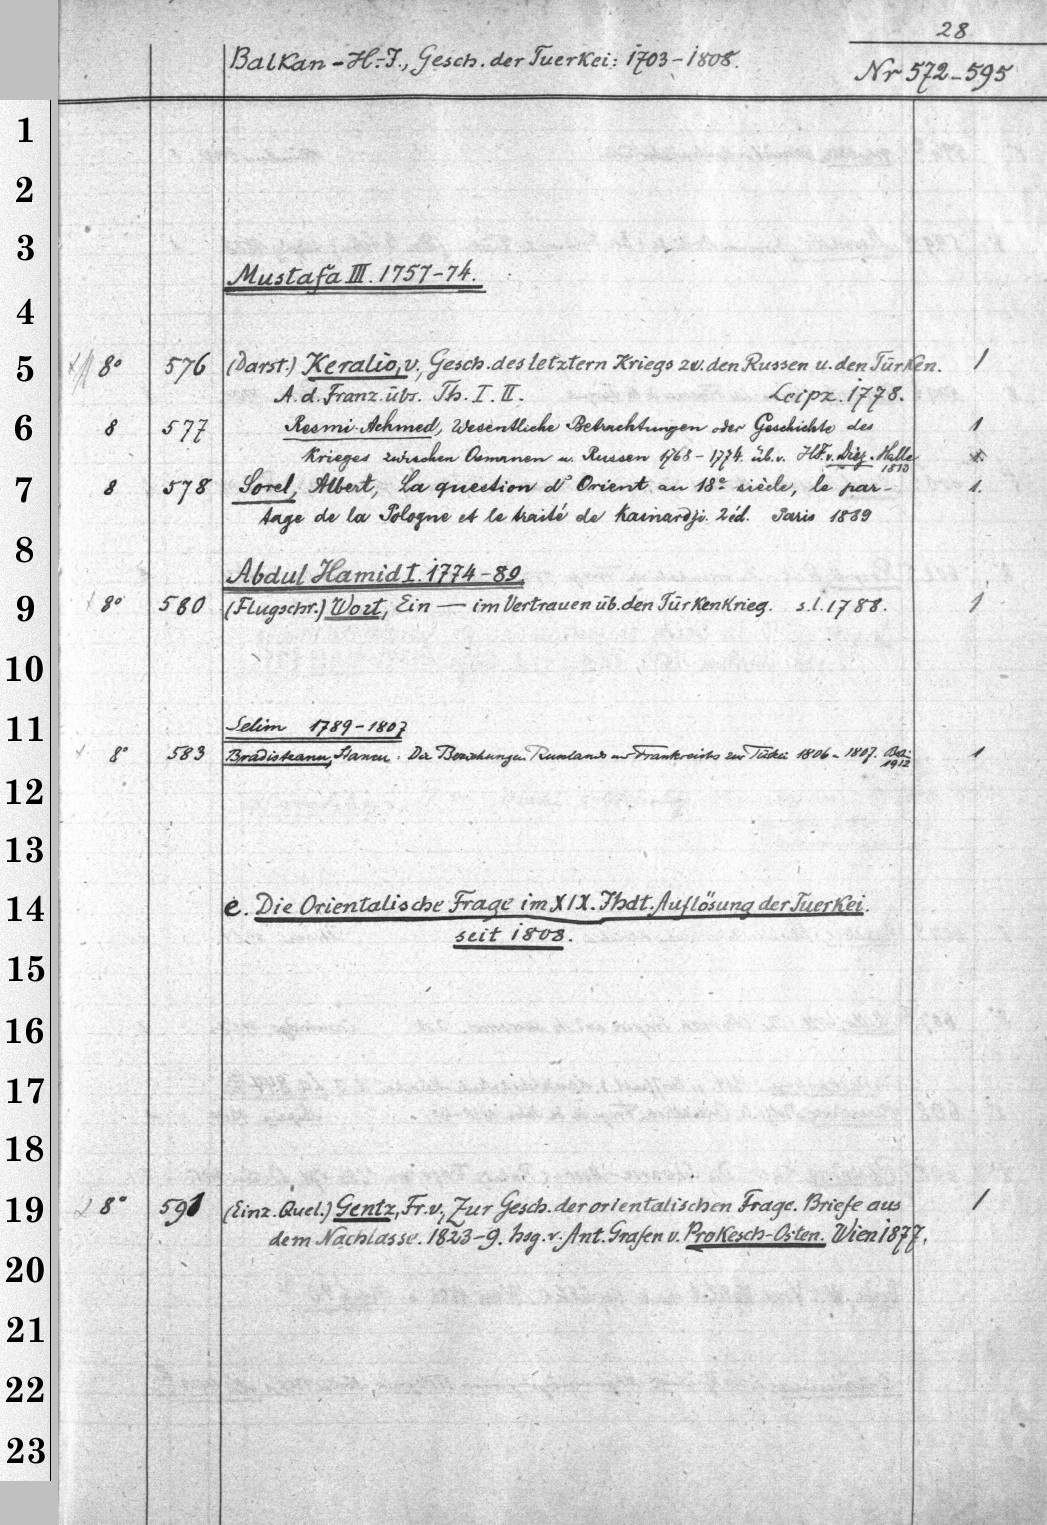 28
Balkan-H.-I., Gesch. der Tuerkei: 1703-1808.
Nr 572-595
1
2
3
Mustafa III. 1757-74.
4
5 8° 576 (Darst.) Keralio, v., Gesch. des letztern Kriegs zw. den Russen u. den Türken. 1
A. d. Franz. übs. Th. I. II. Leipz. 1778.
6 8 577 Resmi Achmed, Wesentliche Betrachtungen oder Geschichte des 1
Krieges zwischen Osmanen u. Russen 1768-1774. üb. v. H.F. v. Diez. Halle 1813
7 8 578 Sorel, Albert, La question d'Orient au 18e siècle, le par- 1.
tage de la Pologne et le traité de Kainardji. 2 éd. Paris 1889
8
Abdul Hamid I. 1774-89.
9 8° 580 (Flugschr.) Wort, Ein — im Vertrauen üb. den Türkenkrieg. s.l. 1788. 1
10
11 Selim 1789-1807
8° 583 Bradisteanu, Stancu. Die Beziehungen Russlands und Frankreichs zur Türkei 1806-1807. Ber. 1912 1
12
13
14 e. Die Orientalische Frage im XIX. Jhdt. Auflösung der Tuerkei.
seit 1808.
15
16
17
18
19 8° 591 (Einz. Quel.) Gentz, Fr. v., Zur Gesch. der orientalischen Frage. Briefe aus 1
dem Nachlasse. 1823-9. hsg. v. Ant. Grafen v. Prokesch-Osten. Wien 1877.
20
21
22
23